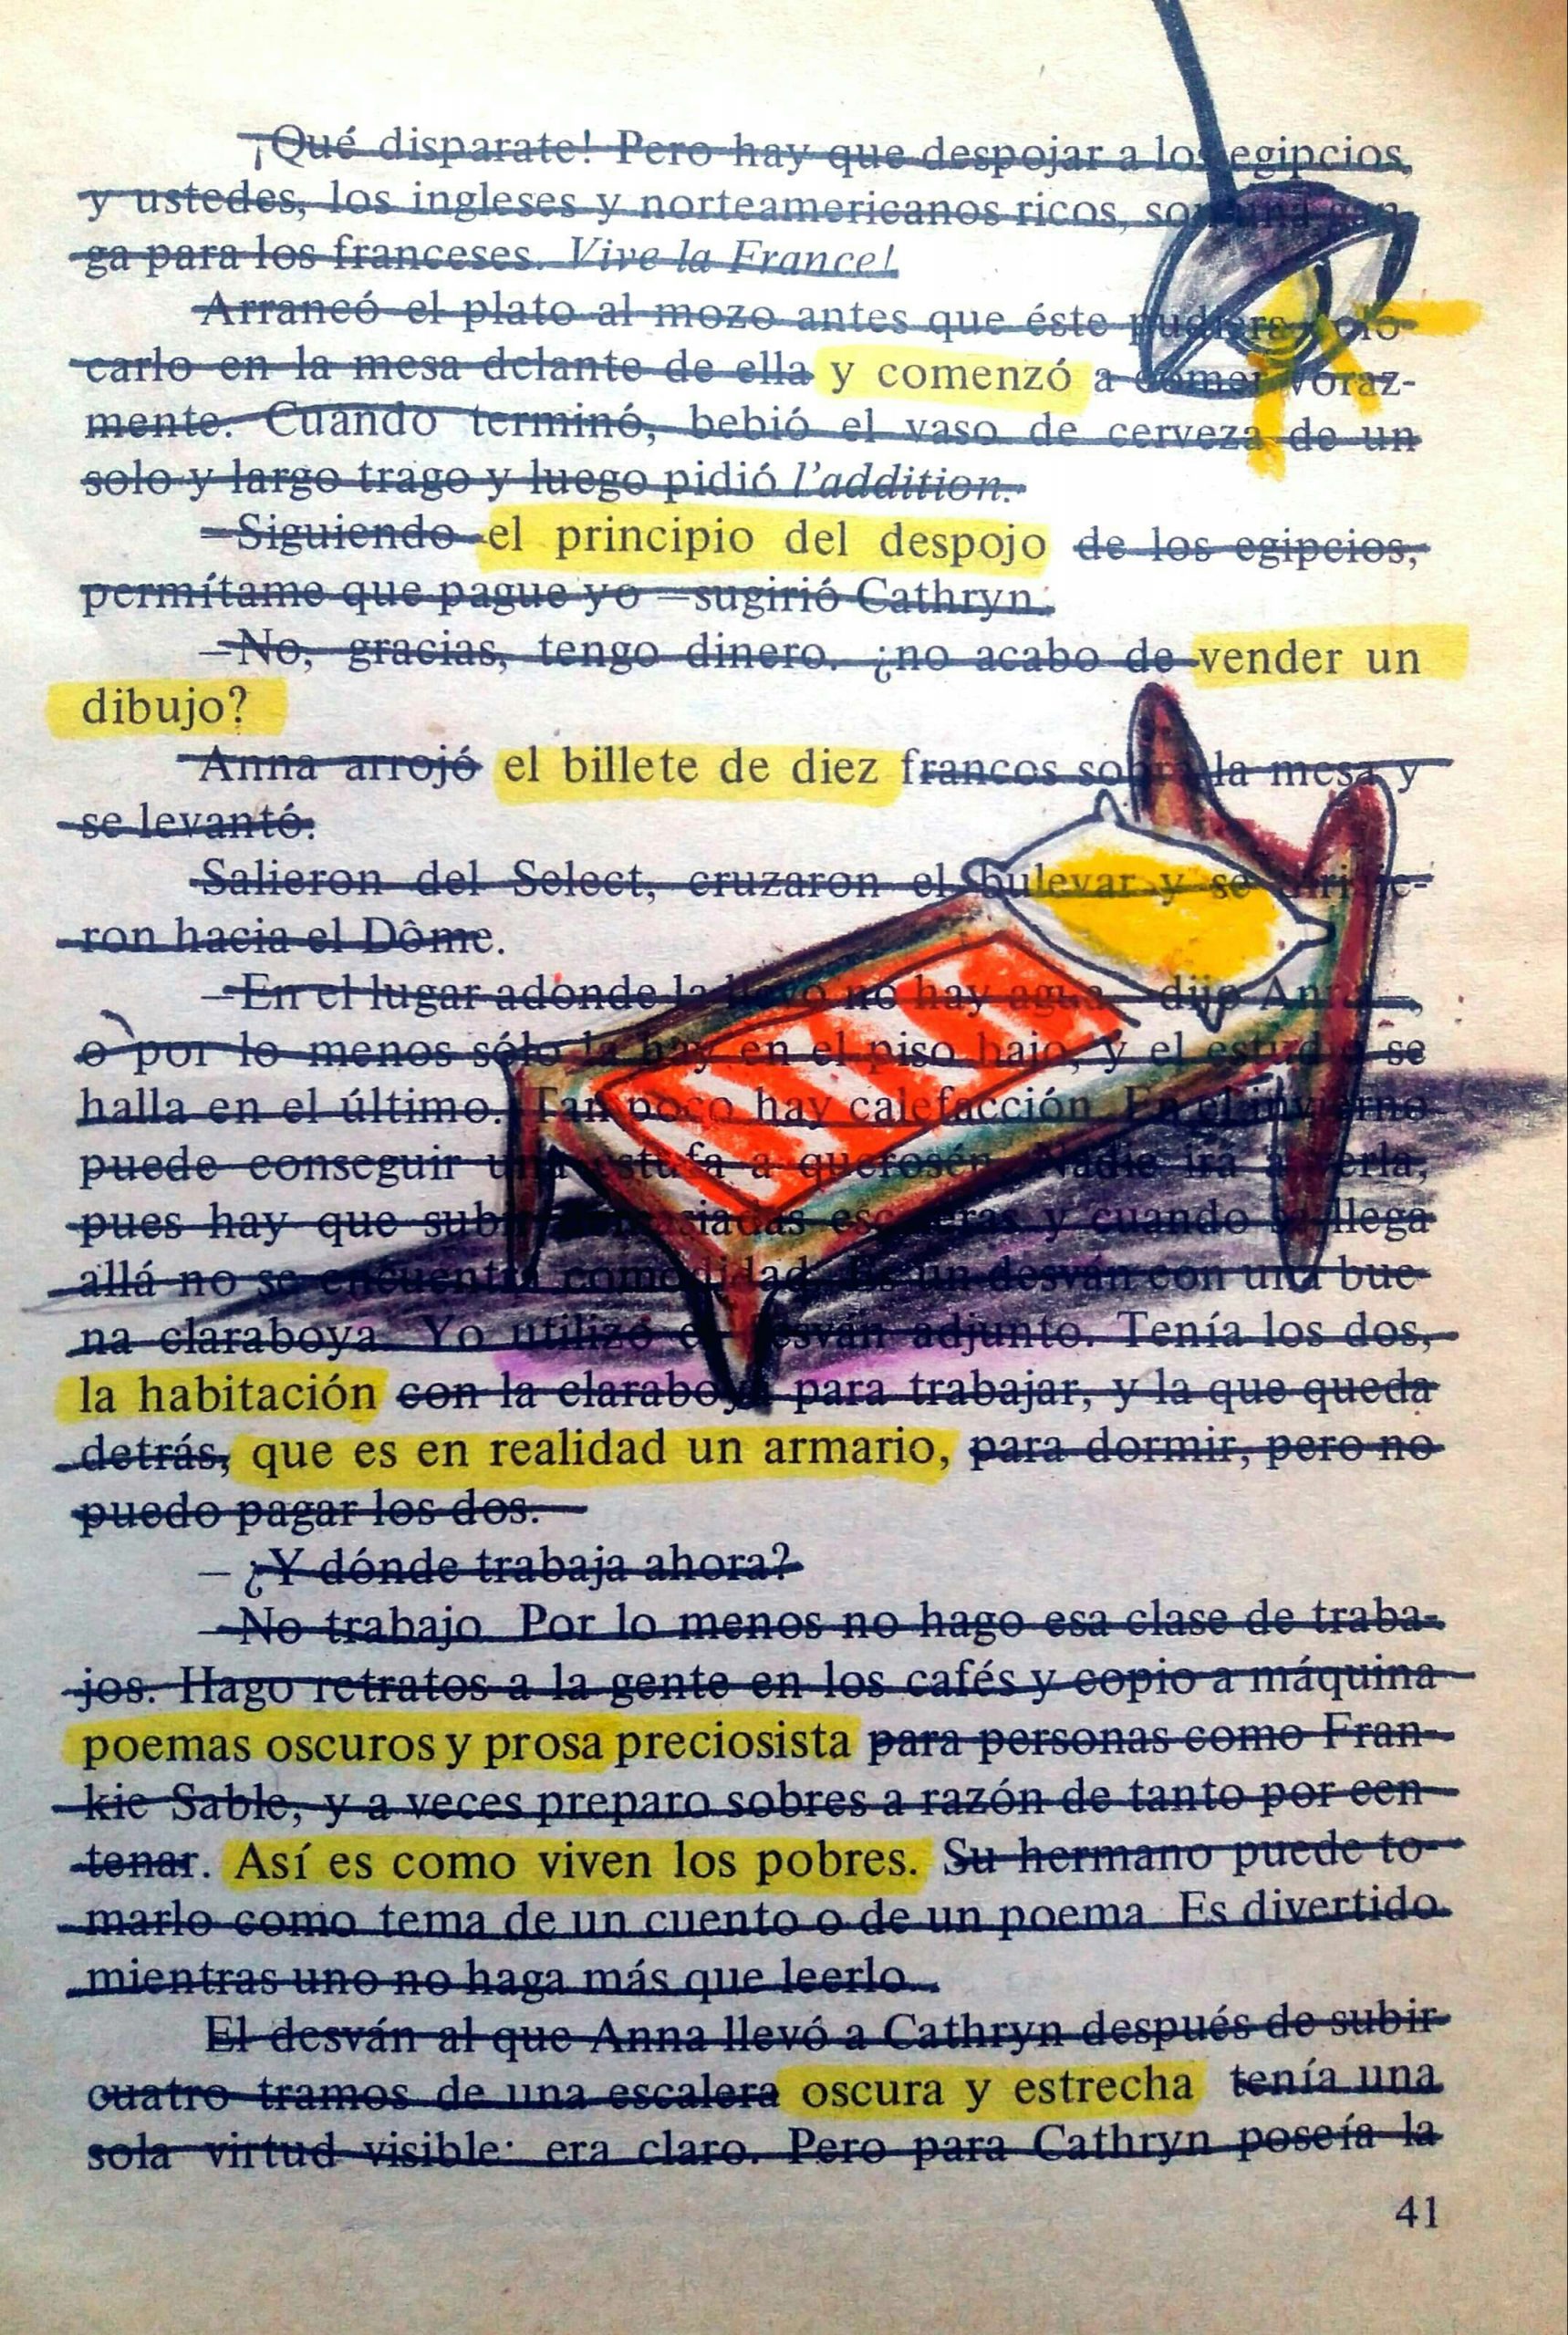 ¡Qué disparate! Pero hay que despojar a los egipcios,
y ustedes, los ingleses y norteamericanos ricos, son una gan-
ga para los franceses. Vive la France!
Arrancó el plato al mozo antes que éste pudiera colo-
carlo en la mesa delante de ella y comenzó a comer voraz-
mente. Cuando terminó, bebió el vaso de cerveza de un
solo y largo trago y luego pidió l'addition.
—Siguiendo el principio del despojo de los egipcios,
permítame que pague yo —sugirió Cathryn.
—No, gracias, tengo dinero. ¿no acabo de vender un
dibujo?
Anna arrojó el billete de diez francos sobre la mesa y
se levantó.
Salieron del Select, cruzaron el bulevar y se dirigie-
ron hacia el Dôme.
—En el lugar adonde la llevo no hay agua —dijo Anna—,
o por lo menos sólo la hay en el piso bajo, y el estudio se
halla en el último. Tampoco hay calefacción. En el invierno
puede conseguir una estufa a querosén. Nadie irá a verla,
pues hay que subir demasiadas escaleras y cuando se llega
allá no se encuentra comodidad. Es un desván con una bue-
na claraboya. Yo utilizo el desván adjunto. Tenía los dos,
la habitación con la claraboya para trabajar, y la que queda
detrás, que es en realidad un armario, para dormir, pero no
puedo pagar los dos.
— ¿Y dónde trabaja ahora?
—No trabajo. Por lo menos no hago esa clase de traba-
jos. Hago retratos a la gente en los cafés y copio a máquina
poemas oscuros y prosa preciosista para personas como Fran-
kie Sable, y a veces preparo sobres a razón de tanto por cen-
tenar. Así es como viven los pobres. Su hermano puede to-
marlo como tema de un cuento o de un poema. Es divertido
mientras uno no haga más que leerlo.
El desván al que Anna llevó a Cathryn después de subir
cuatro tramos de una escalera oscura y estrecha tenía una
sola virtud visible: era claro. Pero para Cathryn poseía la
41